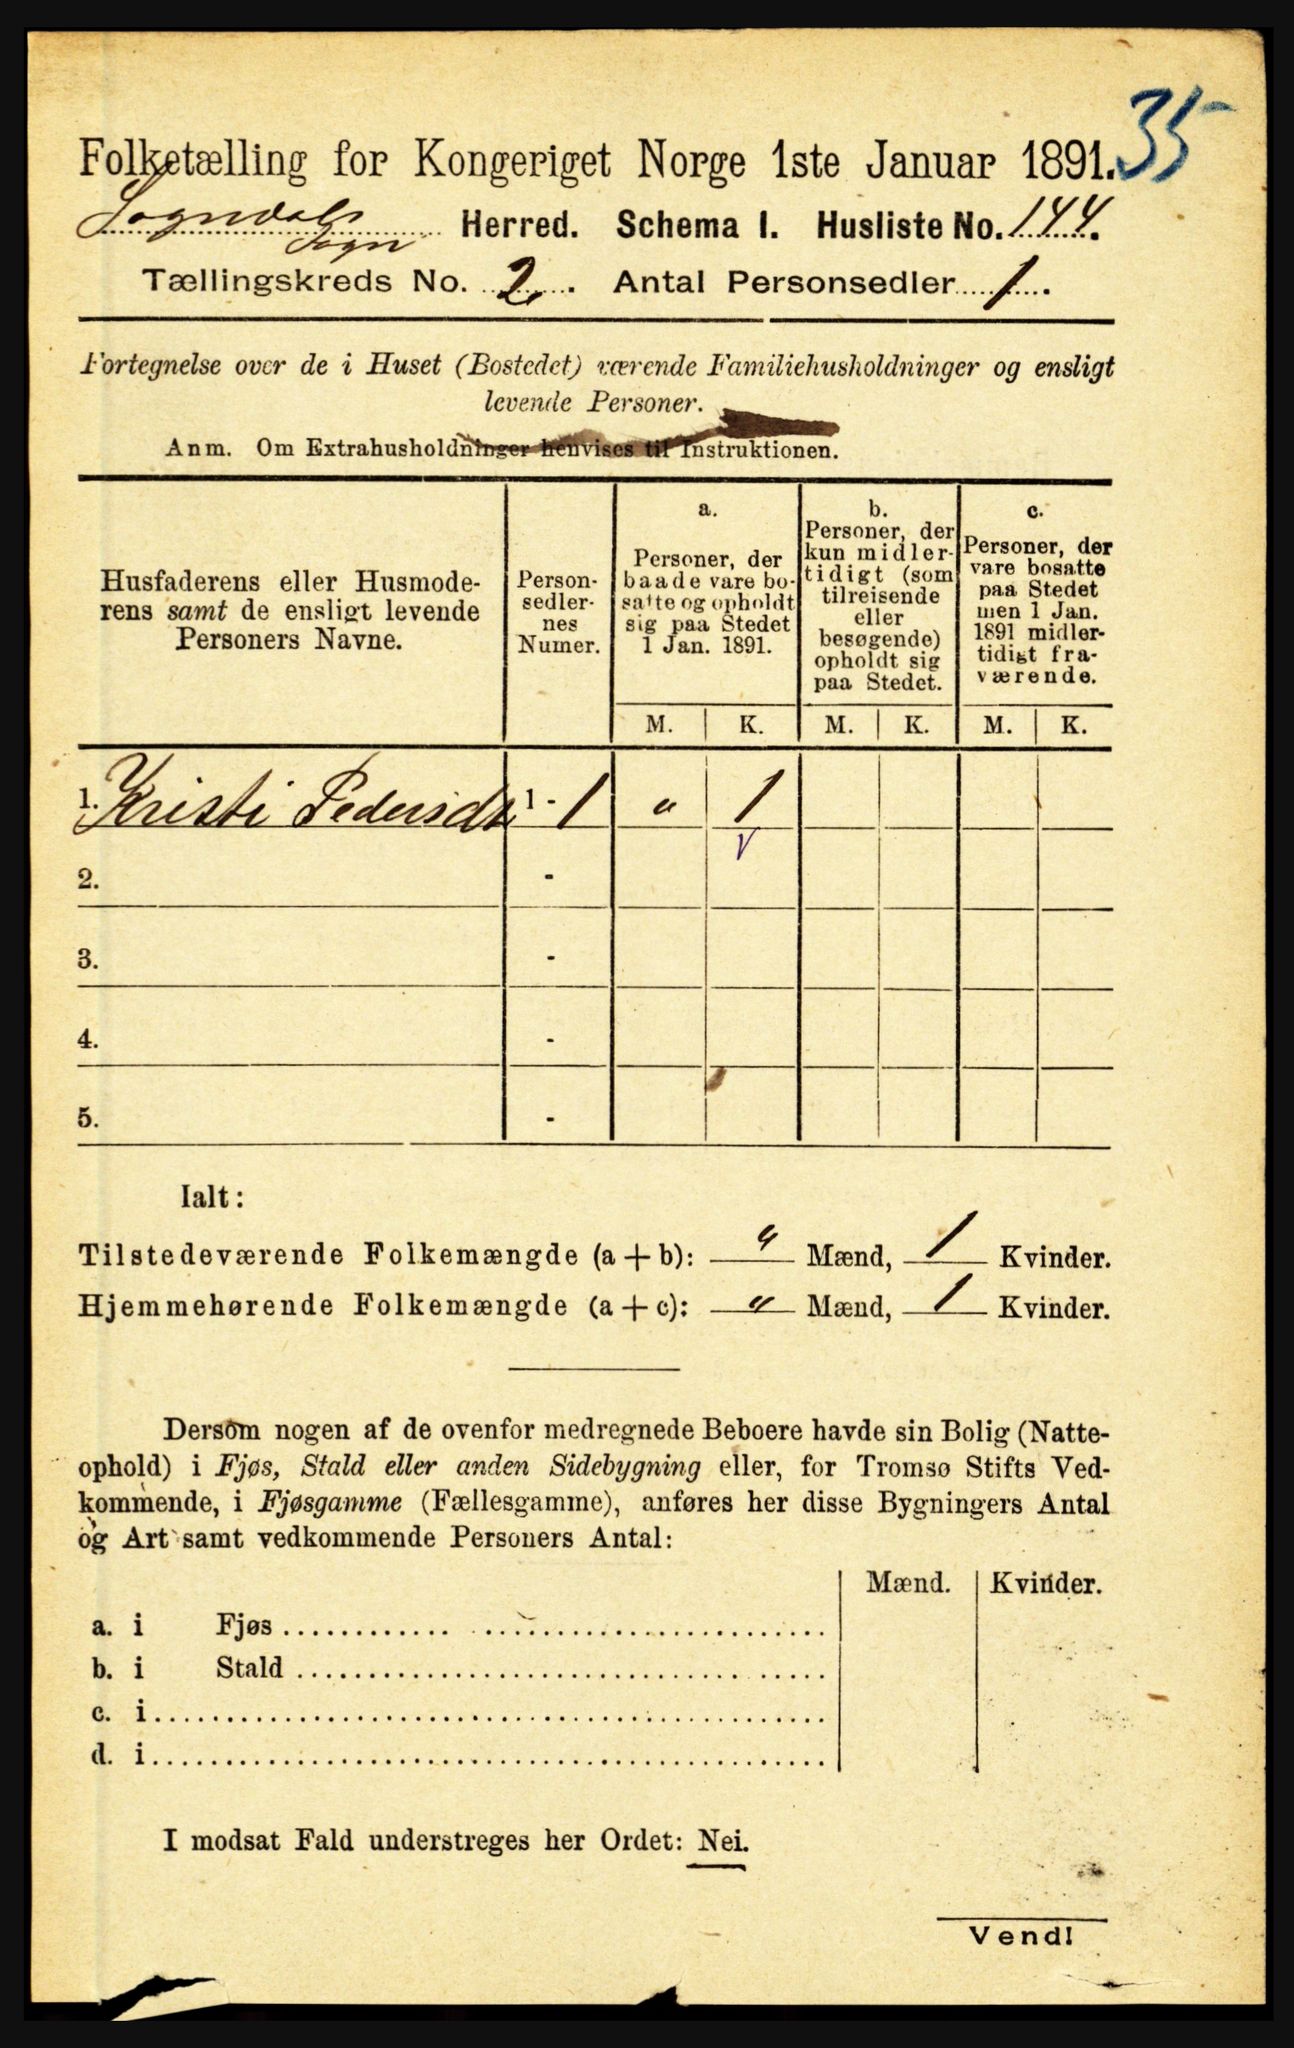 35
Folketælling for Kongeriget Norge 1ste Januar 1891.
Sogndals Sogn Herred. Schema I. Husliste No. 144.
Tællingskreds No. 2. Antal Personsedler 1.
Fortegnelse over de i Huset (Bostedet) værende Familiehusholdninger og ensligt
levende Personer.
Anm. Om Extrahusholdninger henvises til Instruktionen.
Husfaderens eller Husmode-
rens samt de ensligt levende
Personers Navne.
Person-
sedler-
nes
Numer.
a.
Personer, der
baade vare bo-
satte og opholdt
sig paa Stedet
1 Jan. 1891.
b.
Personer, der
kun midler-
tidigt (som
tilreisende
eller
besøgende)
opholdt sig
paa Stedet.
c.
Personer, der
vare bosatte
paa Stedet
men 1 Jan.
1891 midler-
tidigt fra-
værende.
M. K. M. K. M. K.
1. Kristi Pedersdtr 1 - 1 " 1
2. -
3. -
4. -
5. -
Ialt:
Tilstedeværende Folkemængde (a + b): " Mænd, 1 Kvinder.
Hjemmehørende Folkemængde (a + c): " Mænd, 1 Kvinder.
Dersom nogen af de ovenfor medregnede Beboere havde sin Bolig (Natte-
ophold) i Fjøs, Stald eller anden Sidebygning eller, for Tromsø Stifts Ved-
kommende, i Fjøsgamme (Fællesgamme), anføres her disse Bygningers Antal
og Art samt vedkommende Personers Antal:
Mænd. Kvinder.
a. i Fjøs
b. i Stald
c. i
d. i
I modsat Fald understreges her Ordet: Nei.
Vend!